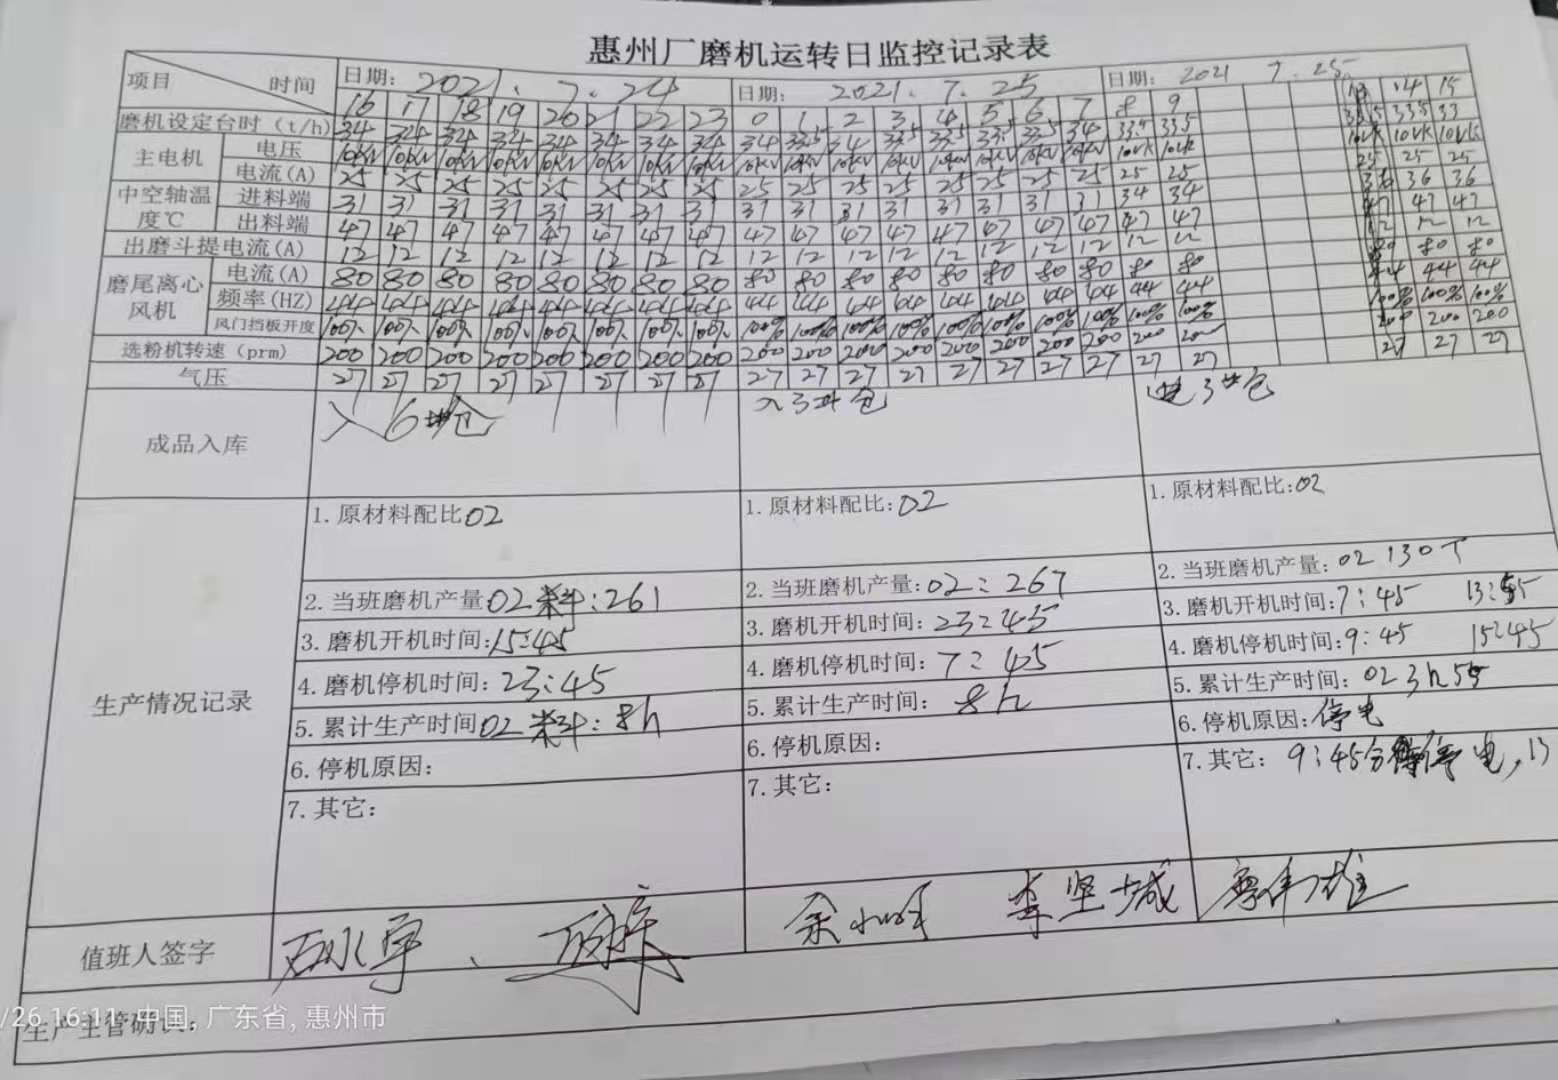 惠州厂磨机运转日监控记录表
项目 时间 日期: 2021.7.24 日期: 2021.7.25 日期: 2021 7.25
16 17 18 19 20 21 22 23 0 1 2 3 4 5 6 7 8 9 13 14 15
磨机设定台时(t/h) 34 34 34 34 34 34 34 34 34 33.5 34 33.5 33.5 33.5 33.5 34 33.5 33.5 33.5 33.5 33
主电机 电压 10kv 10kv 10kv 10kv 10kv 10kv 10kv 10kv 10kv 10kv 10kv 10kv 10kv 10kv 10kv 10kv 10vk 10vk 10vk 10vk 10vk
电流(A) 25 25 25 25 25 25 25 25 25 25 25 25 25 25 25 25 25 25 25 25 25
中空轴温度℃ 进料端 31 31 31 31 31 31 31 31 31 31 31 31 31 31 31 31 34 34 36 36 36
出料端 47 47 47 47 47 47 47 47 47 47 47 47 47 47 47 47 47 47 47 47 47
出磨斗提电流(A) 12 12 12 12 12 12 12 12 12 12 12 12 12 12 12 12 12 12 12 12 12
磨尾离心风机 电流(A) 80 80 80 80 80 80 80 80 80 80 80 80 80 80 80 80 80 80 80 80 80
频率(HZ) 44 44 44 44 44 44 44 44 44 44 44 44 44 44 44 44 44 44 44 44 44
风门挡板开度 100% 100% 100% 100% 100% 100% 100% 100% 100% 100% 100% 100% 100% 100% 100% 100% 100% 100% 100% 100% 100%
选粉机转速(prm) 200 200 200 200 200 200 200 200 200 200 200 200 200 200 200 200 200 200 200 200 200
气压 27 27 27 27 27 27 27 27 27 27 27 27 27 27 27 27 27 27 27 27 27
成品入库 入6#仓 入3#仓 进3#仓
生产情况记录
1.原材料配比02
2.当班磨机产量02料:261
3.磨机开机时间:15:45
4.磨机停机时间:23:45
5.累计生产时间02料:8h
6.停机原因:
7.其它:
1.原材料配比:02
2.当班磨机产量:02:267
3.磨机开机时间:23:45
4.磨机停机时间:7:45
5.累计生产时间: 8h
6.停机原因:
7.其它:
1.原材料配比:02
2.当班磨机产量:02 130T
3.磨机开机时间:7:45 13:55
4.磨机停机时间:9:45 15:45
5.累计生产时间:02 3h55
6.停机原因:停电
7.其它: 9:45分停电,13
值班人签字 李坚城 廖伟雄
生产主管确认:
/26 16:11 中国, 广东省, 惠州市